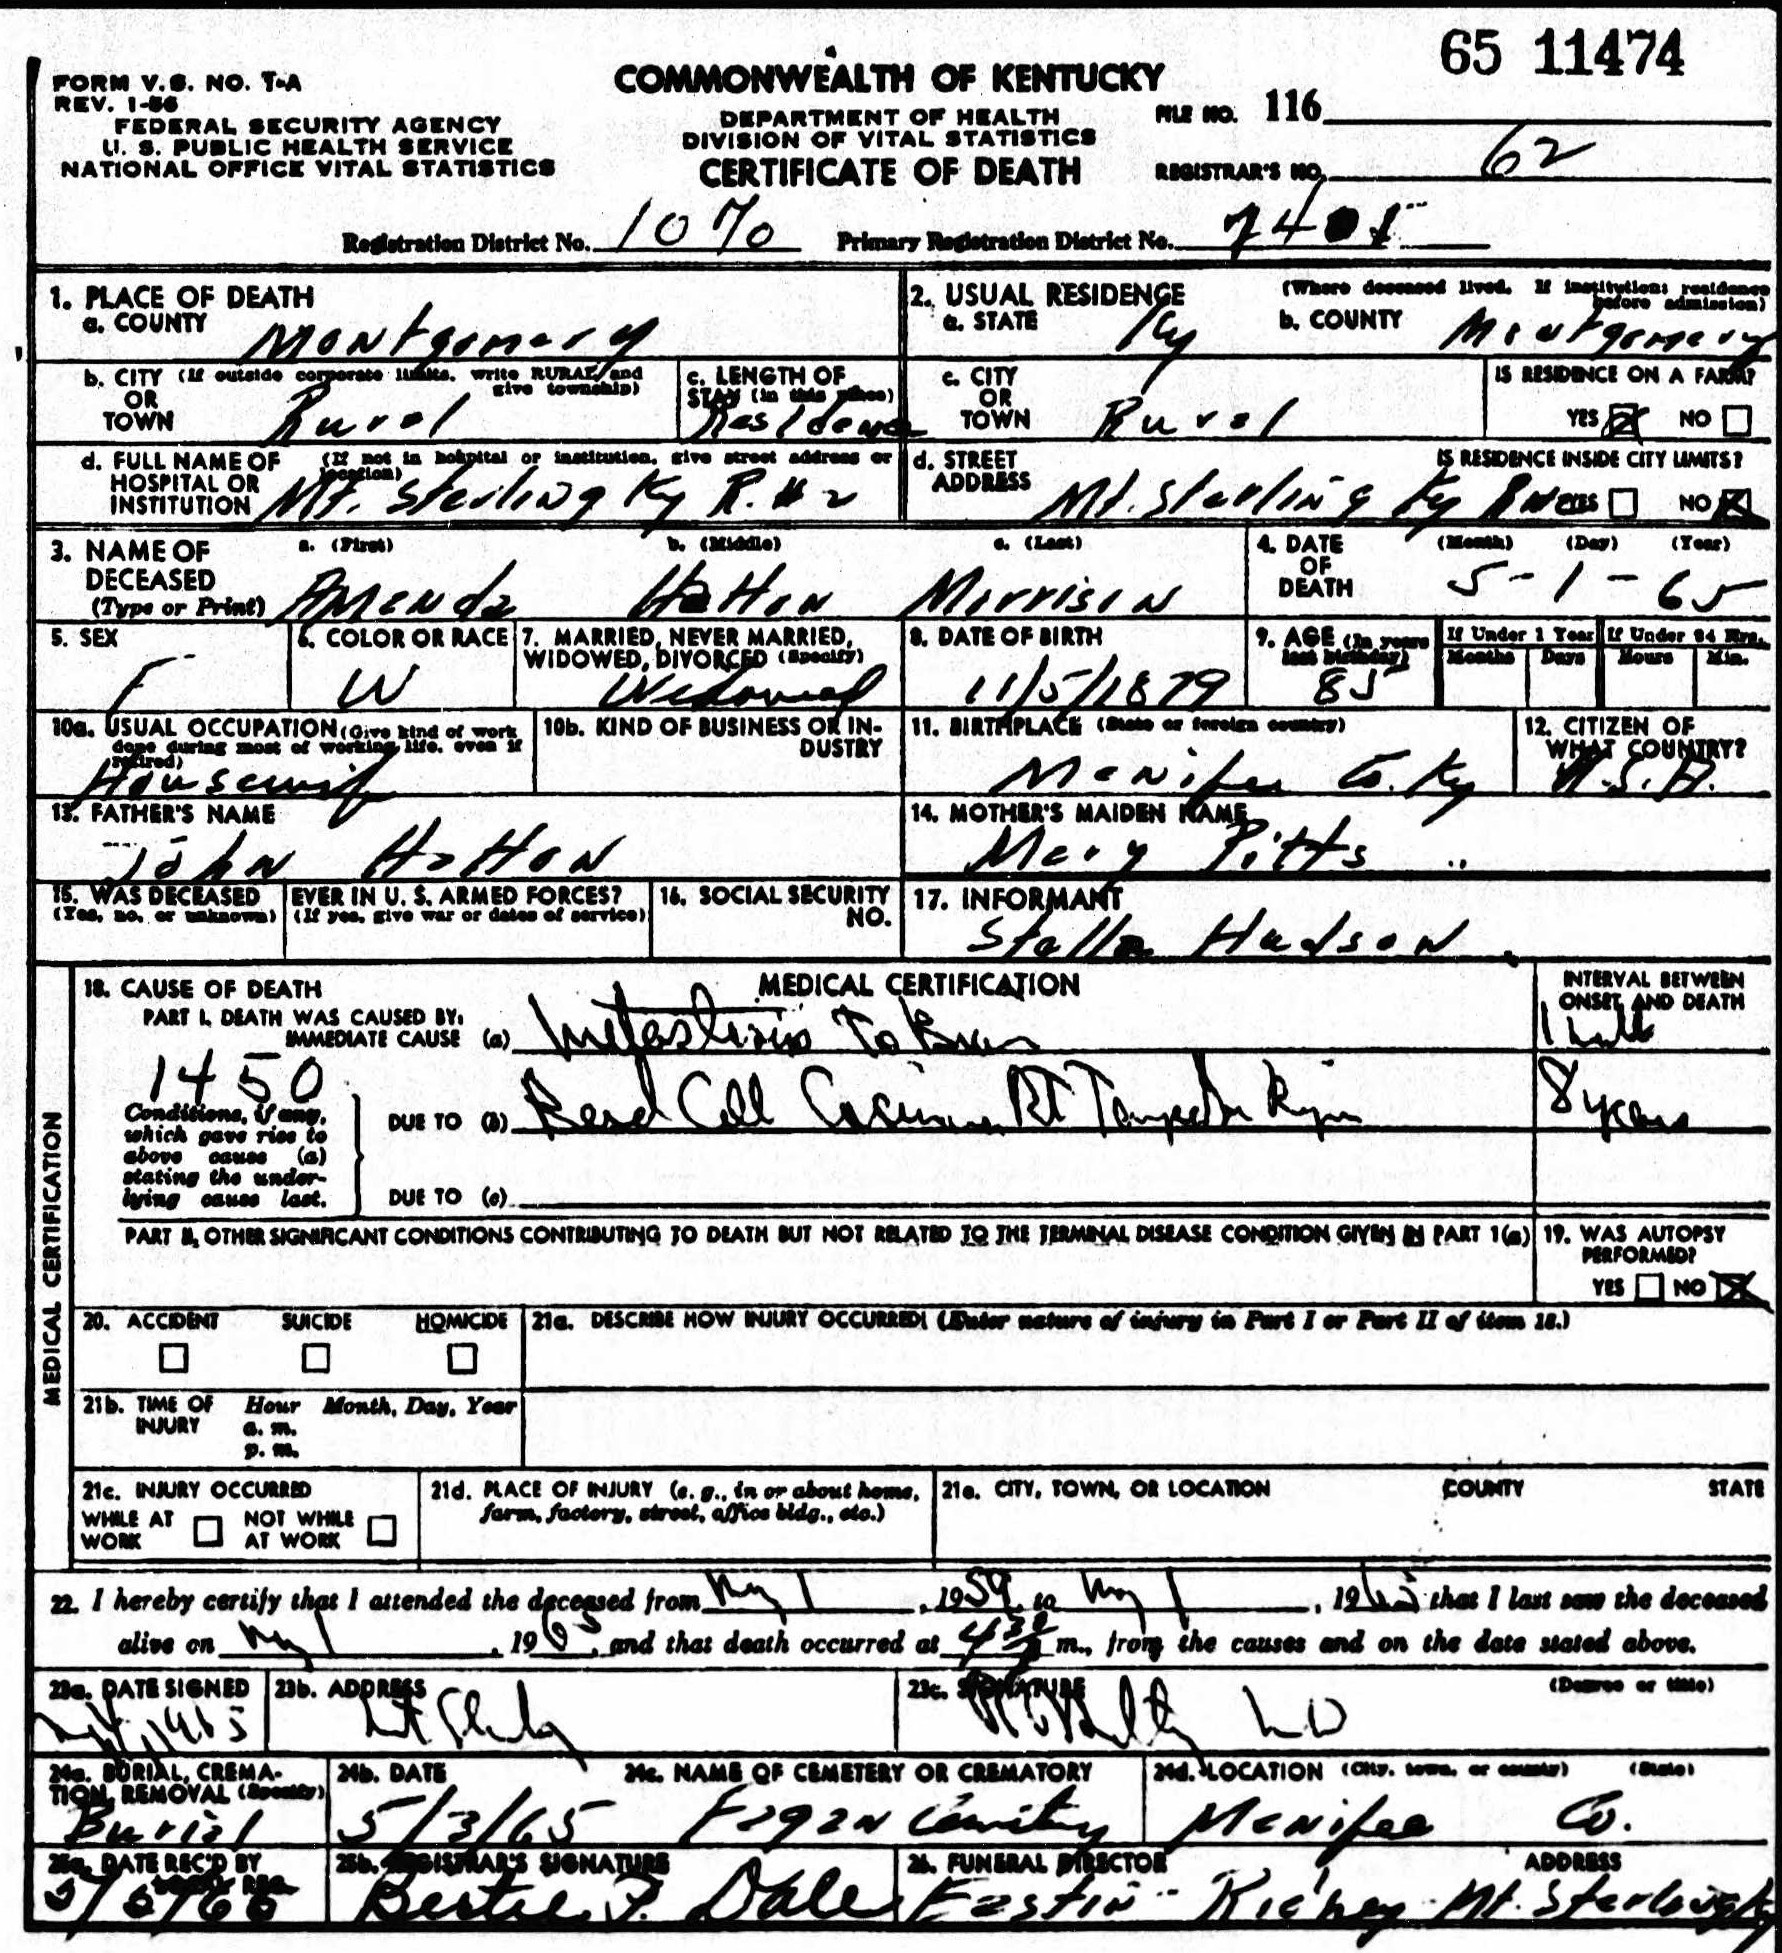 65 11474
FORM V.S. NO. 1-A
REV. 1-56
FEDERAL SECURITY AGENCY
U. S. PUBLIC HEALTH SERVICE
NATIONAL OFFICE VITAL STATISTICS
COMMONWEALTH OF KENTUCKY
DEPARTMENT OF HEALTH
DIVISION OF VITAL STATISTICS
CERTIFICATE OF DEATH
FILE NO. 116
REGISTRAR'S NO. 62
Registration District No. 1070 Primary Registration District No. 7405
1. PLACE OF DEATH
a. COUNTY Montgomery
2. USUAL RESIDENCE (Where deceased lived. If institution: residence before admission)
a. STATE Ky b. COUNTY Montgomery
b. CITY (If outside corporate limits, write RURAL and give township)
OR
TOWN Rural
c. LENGTH OF STAY (in this place) Residence
c. CITY
OR
TOWN Rural
IS RESIDENCE ON A FARM?
YES NO
d. FULL NAME OF HOSPITAL OR INSTITUTION (If not in hospital or institution, give street address or location)
Mt. Sterling Ky R. #2
d. STREET ADDRESS Mt. Sterling Ky
IS RESIDENCE INSIDE CITY LIMITS?
YES NO
3. NAME OF DECEASED (Type or Print)
a. (First) b. (Middle) c. (Last)
Amanda Hatton Morrison
4. DATE OF DEATH (Month) (Day) (Year)
5-1-65
5. SEX
F
6. COLOR OR RACE
W
7. MARRIED, NEVER MARRIED, WIDOWED, DIVORCED (Specify)
Widowed
8. DATE OF BIRTH
11/5/1879
9. AGE (In years last birthday)
85
If Under 1 Year
Months Days
If Under 24 Hrs.
Hours Min.
10a. USUAL OCCUPATION (Give kind of work done during most of working life, even if retired)
Housewife
10b. KIND OF BUSINESS OR INDUSTRY
11. BIRTHPLACE (State or foreign country)
Menifee Co. Ky
12. CITIZEN OF WHAT COUNTRY?
U.S.A.
13. FATHER'S NAME
John Hatton
14. MOTHER'S MAIDEN NAME
Mary Pitts
15. WAS DECEASED EVER IN U. S. ARMED FORCES?
(Yes, no, or unknown) (If yes, give war or dates of service)
16. SOCIAL SECURITY NO.
17. INFORMANT
Stella Hudson
MEDICAL CERTIFICATION
18. CAUSE OF DEATH
MEDICAL CERTIFICATION
INTERVAL BETWEEN ONSET AND DEATH
PART I. DEATH WAS CAUSED BY:
IMMEDIATE CAUSE (a) Metastasis To Brain
1450
Conditions, if any, which gave rise to above cause (a) stating the underlying cause last.
DUE TO (b) Basal Cell Carcinoma Rt 8 years
DUE TO (c)
PART II. OTHER SIGNIFICANT CONDITIONS CONTRIBUTING TO DEATH BUT NOT RELATED TO THE TERMINAL DISEASE CONDITION GIVEN IN PART 1(a)
19. WAS AUTOPSY PERFORMED?
YES NO
20. ACCIDENT SUICIDE HOMICIDE
21a. DESCRIBE HOW INJURY OCCURRED! (Enter nature of injury in Part I or Part II of item 18.)
21b. TIME OF INJURY Hour Month, Day, Year
a. m.
p. m.
21c. INJURY OCCURRED
WHILE AT WORK NOT WHILE AT WORK
21d. PLACE OF INJURY (e. g., in or about home, farm, factory, street, office bldg., etc.)
21e. CITY, TOWN, OR LOCATION COUNTY STATE
22. I hereby certify that I attended the deceased from May 1, 1959, to May 1, 1965 that I last saw the deceased
alive on May 1, 1965, and that death occurred at 430 m., from the causes and on the date stated above.
23a. DATE SIGNED
23b. ADDRESS
Mt Sterling
23c. SIGNATURE (Degree or title)
MD
24a. BURIAL, CREMATION, REMOVAL (Specify)
Burial
24b. DATE
5/3/65
24c. NAME OF CEMETERY OR CREMATORY
Fagan Cemetery
24d. LOCATION (City, town, or county) (State)
Menifee Co.
25a. DATE REC'D BY LOCAL REG.
25b. REGISTRAR'S SIGNATURE
Dale
26. FUNERAL DIRECTOR ADDRESS
Eastin - Richey Mt. Sterling Ky